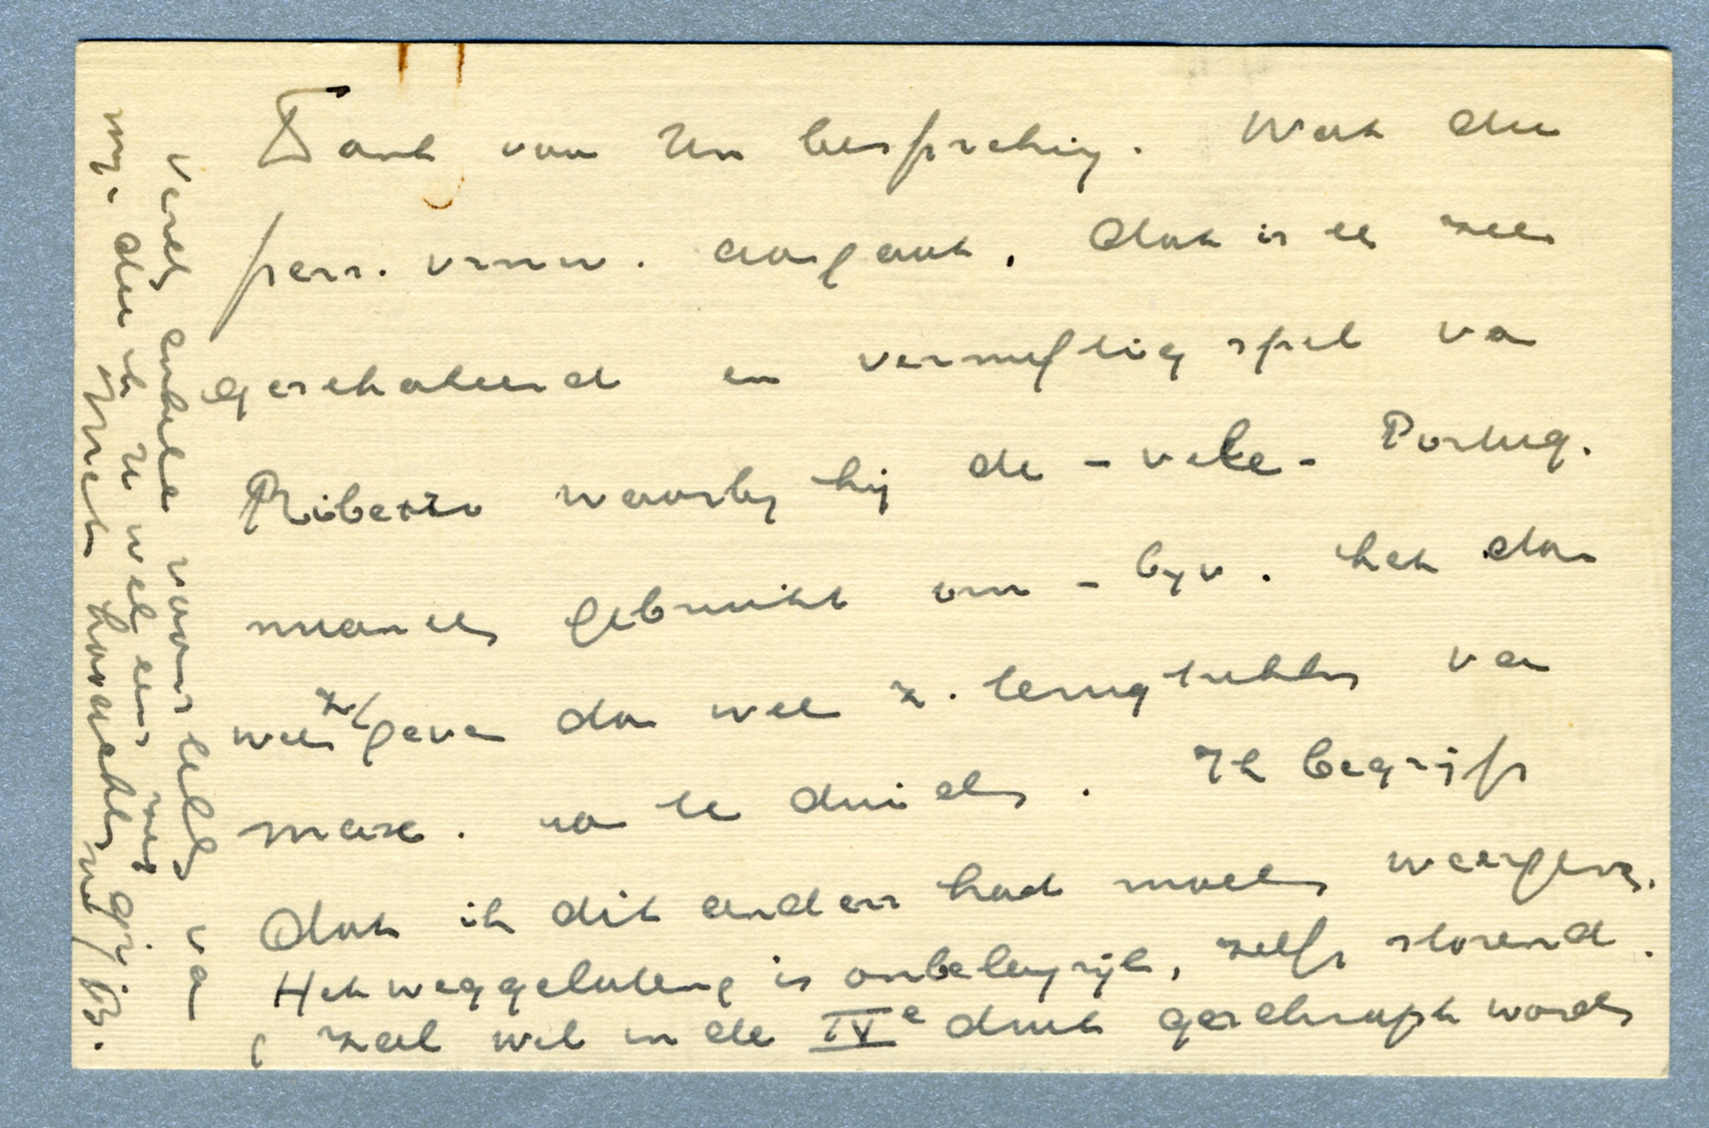 Dank voor Uw bespreking. Wat die
pers. vrnw. aangaat, dat is een zeer
geschakeerd en vernuftig spel van
Ribeiro waarbij hij de - vele - Portug.
nuances gebruikt om - bijv. het dan
weer geven dan wel z. terugtrekken van
mase. aan te duiden. Ik begrijp
dat ik dit anders had moeten weergeven.
Het weggelatene is onbelangrijk, zelfs storend
zal wel in de IVe druk geschrapt worden
Vond enkele voorstellen van
mij die ik U wel eens zeg
Met hoogachting